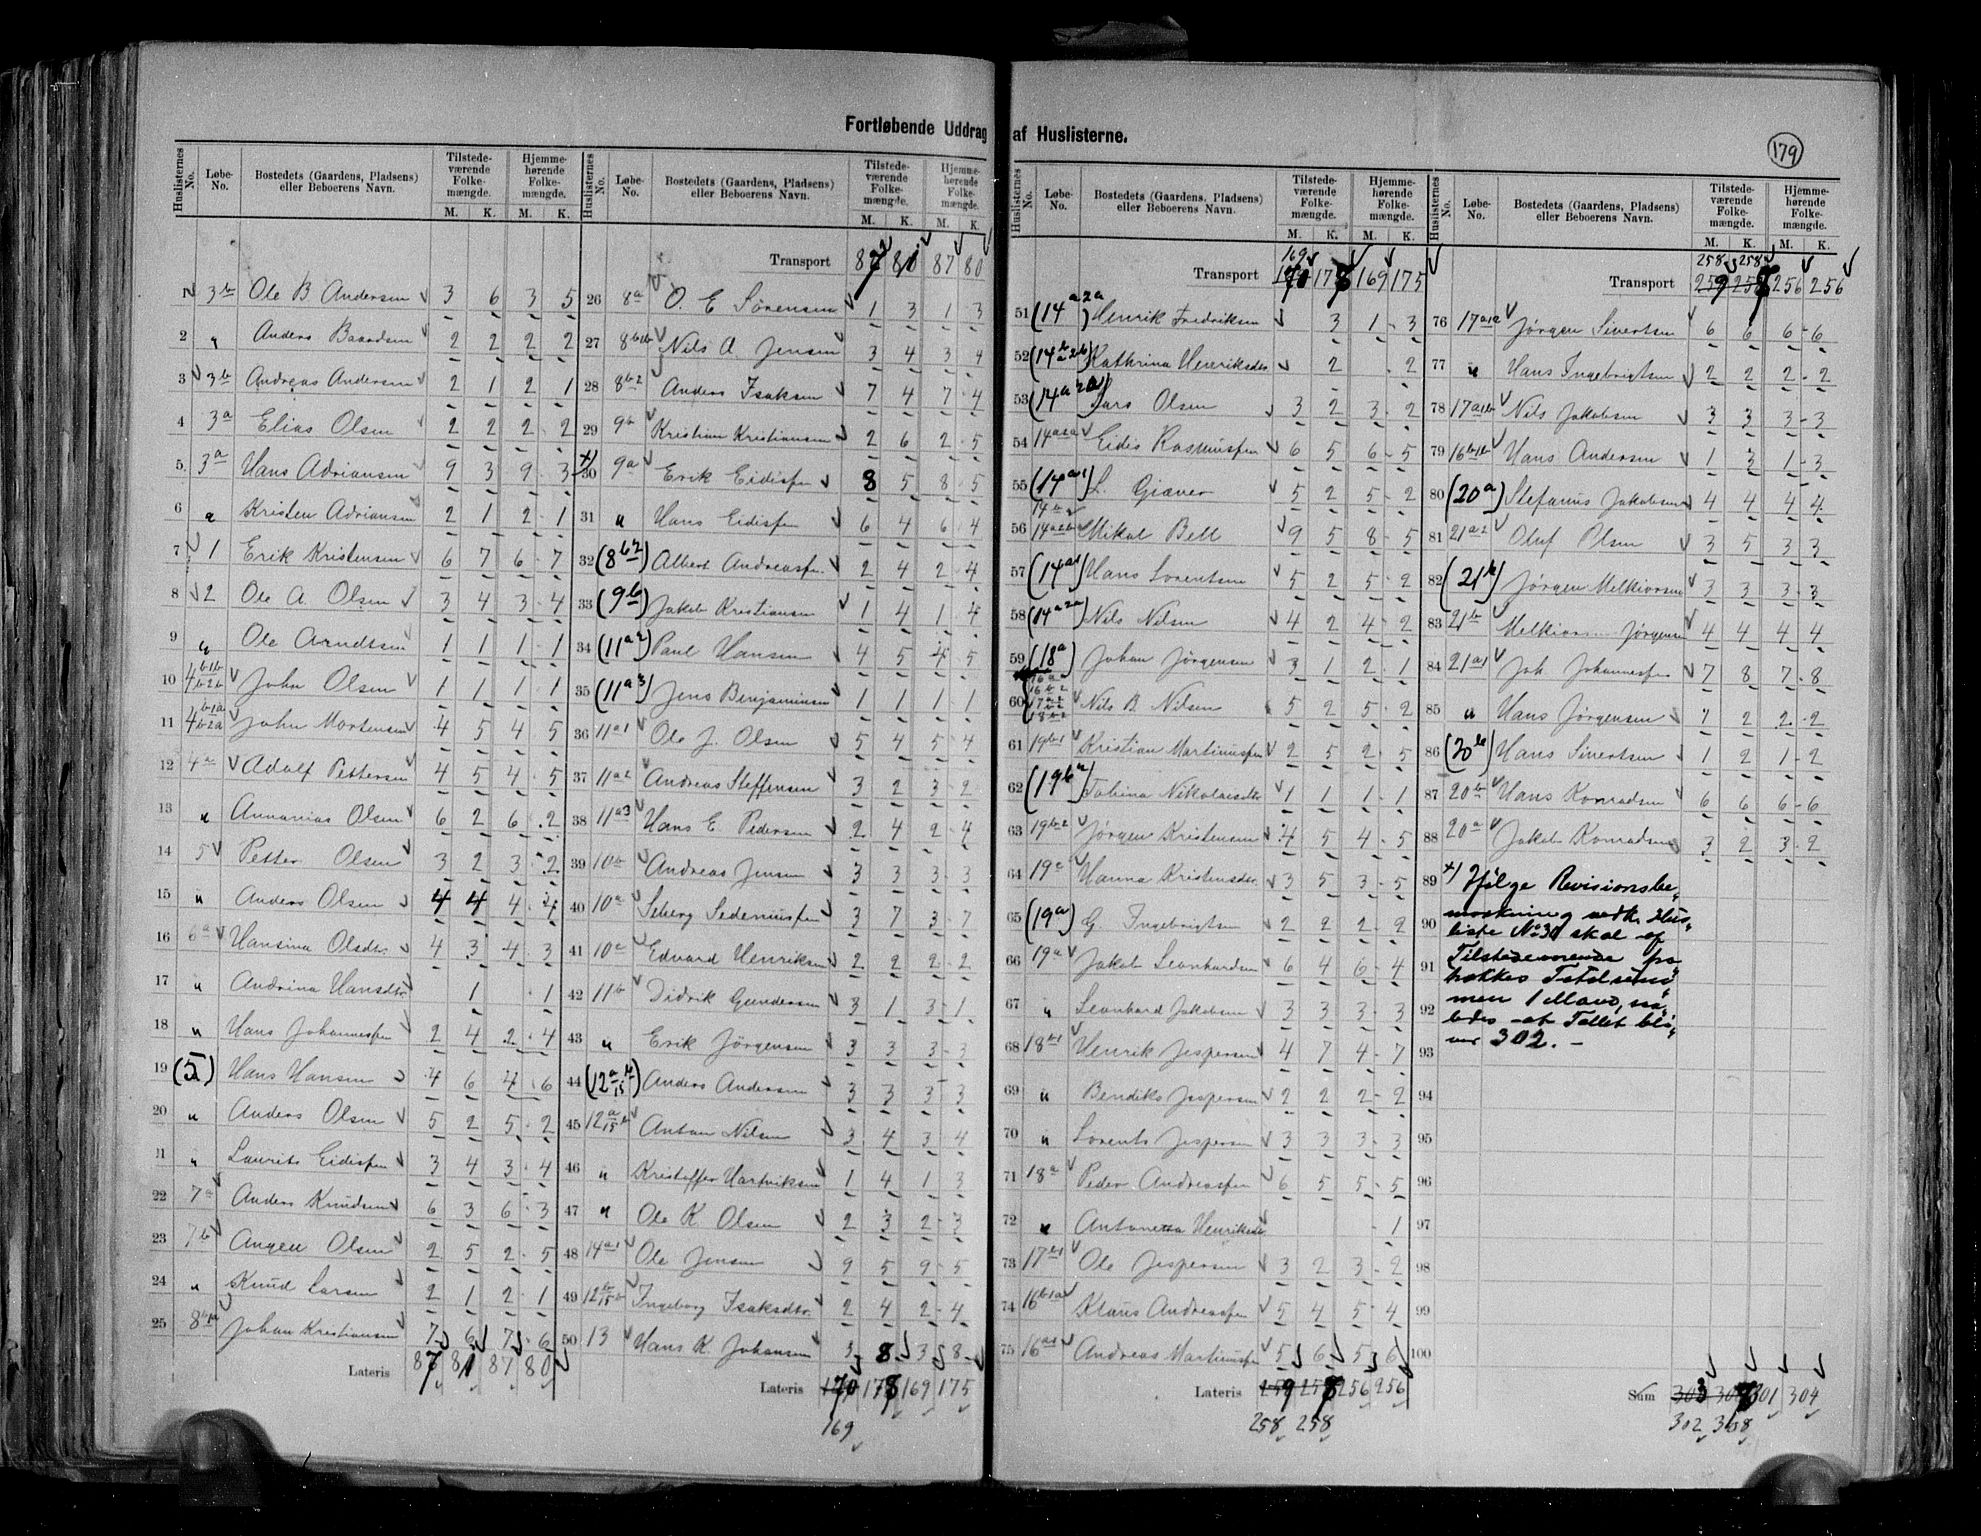 Fortløbende Uddrag af Huslisterne.
179
Huslisternes No. Løbe-No. Bostedets (Gaardens, Pladsens) eller Beboerens Navn. Tilstedeværende Folkemængde. Hjemmehørende Folkemængde.
M. K. M. K.
1 3b Ole B Andersen 3 6 3 5
2 " Anders Baardsen 2 2 2 2
3 3b Andreas Andersen 2 1 2 1
4 3a Elias Olsen 2 2 2 2
5 3a Hans Adriansen 9 3 9 3
6 " Kristen Adriansen 2 1 2 1
7 1 Erik Kristensen 6 7 6 7
8 2 Ole A. Olsen 3 4 3 4
9 " Ole Arndtsen 1 1 1 1
10 4b1b b2b John Olsen 1 1 1 1
11 4b1a b2a John Mortensen 4 5 4 5
12 4a Adolf Pettersen 4 5 4 5
13 " Annanias Olsen 6 2 6 2
14 5 Petter Olsen 3 2 3 2
15 " Anders Olsen 4 4 4 4
16 6a Hansina Olsdtr. 4 3 4 3
17 " Andrina Hansdtr 1 1
18 " Hans Johannessen 2 4 2 4
19 (5) Hans Hansen 4 6 4 6
20 " Anders Olsen 5 2 5 2
21 " Laurits Eidissen 3 4 3 4
22 7a Anders Knudsen 6 3 6 3
23 7b Angel Olsen 2 5 2 5
24 " Knud Larsen 2 1 2 1
25 8b1a Johan Kristiansen 7 6 7 6
Lateris 87 81 87 80
Transport 87 81 87 80
26 8a O. E Sørensen 1 3 1 3
27 8b1b Nils A Jensen 3 4 3 4
28 8b2 Anders Isaksen 7 4 7 4
29 9b Kristian Kristiansen 2 6 2 5
x) 30 9a Erik Eidissen 8 5 8 5
31 " Hans Eidissen 6 4 6 4
32 (8b2) Albert Andreassen 2 4 2 4
33 (9b) Jakob Kristiansen 1 4 1 4
34 (11a2) Paul Hansen 4 5 4 5
35 (11a3) Jens Benjaminsen 1 1 1 1
36 11a1 Ole J. Olsen 5 4 5 4
37 11a2 Andreas Steffensen 3 2 3 2
38 11a3 Hans E Pedersen 2 4 2 4
39 10b Andreas Jensen 3 3 3 3
40 10a Seberg Sedeniussen 3 7 3 7
41 10a Edvard Henriksen 2 2 2 2
42 11b Didrik Gundersen 3 1 3 1
43 " Erik Jørgensen 3 3 3 3
44 (12a 15) Anders Andersen 3 3 3 3
45 12a 15 Anton Nilsen 3 4 3 4
46 " Kristoffer Hartviksen 1 4 1 3
47 " Ole K. Olsen 2 3 2 3
48 14a1 Ole Jensen 9 5 9 5
49 12b 15b Ingeborg Isaksdtr. 2 4 2 4
50 13 Hans K. Johansen 3 8 3 8
Lateris 170 178 169 175
169
169
Transport 170 178 169 175
51 (14a2a) Henrik Fredriksen 3 1 3
52 (14a2b) Kathrina Henriksdtr 2 2
53 (14a2a) Lars Olsen 3 2 3 2
54 14a2a Eidis Rasmussen 6 5 6 5
55 (14a1) L. Giæver 5 2 5 2
56 14b 14a2b Mikal Bell 9 5 8 5
57 (14a1) Hans Lorentsen 5 2 5 2
58 (14a2a) Nils Nilsen 4 2 4 2
59 (18a) Johan Jørgensen 3 1 2 1
60 16a 16b2 17a2 18b2 Nils B. Nilsen 5 2 5 2
61 19b1 Kristian Martinussen 2 5 2 5
62 (19b2) Tobina Nikolaisdtr 1 1 1 1
63 19b2 Jørgen Kristensen 4 5 4 5
64 19a Hanna Kristensdtr. 3 5 3 5
65 (19a) G Ingebrigtsen 2 2 2 2
66 19a Jakob Leonhardsen 6 4 6 4
67 " Leonhard Jakobsen 3 3 3 3
68 18b1 Henrik Jespersen 4 7 4 7
69 " Bendiks Jespersen 2 2 2 2
70 " Lorents Jespersen 3 3 3 3
71 18a Peder Andreassen 6 5 5 5
72 " Antonetta Henriksdtr 1
73 17b1 Ole Jespersen 3 2 3 2
74 16b1a Klaus Andreassen 5 4 5 4
75 16a1 Andreas Martinussen 5 6 5 6
Lateris 259 258 256 256
258 258
258 258
Transport 259 258 256 256
76 17a1a Jørgen Sivertsen 6 6 6 6
77 " Hans Ingebrigtsen 2 2 2 2
78 17a1b Nils Jakobsen 3 3 3 3
79 16b1b Hans Andersen 1 3 1 3
80 (20a) Stefanus Jakobsen 4 4 4 4
81 21a2 Oluf Olsen 3 5 3 3
82 (21b) Jørgen Melkiorsen 3 3 3 3
83 21b Melkior Jørgensen 4 4 4 4
84 21a1 Joh Johannessen 7 8 7 8
85 " Hans Jørgensen 2 2 2 2
86 (20b) Hans Sivertsen 1 2 1 2
87 20b Hans Konradsen 6 6 6 6
88 20a Jakob Konradsen 3 2 3 2
89 x) Ifølge Revisionsbe-
90 mærkning vedk. Hus-
liste No 30 skal af
91 Tilstedeværende fra
trækkes Totalsum-
men 1 Mand, saa-
92 ledes at Tallet bli-
ver 302. –
93
94
95
96
97
98
99
100
Sum 303 308 301 304
302 308